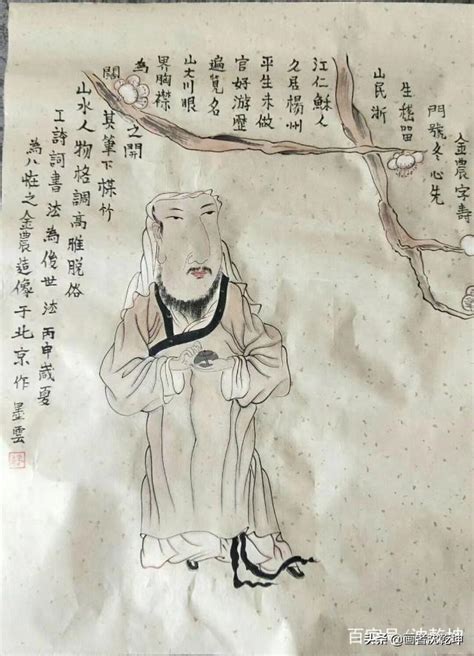 金農字壽
門號冬心先
生嵇畱
山民浙
江仁蘇人
久居楊州
平生未做
官好游歷
遍覧名
山大川眼
界胸襟
為之開
闊
其筆下楳竹
山水人物格調高雅脱俗
工詩詞書法為後世法丙申歲夏
為八怪之金農造像于北京作墨雲
百家号/沈乾坤
头条 @画者沈乾坤